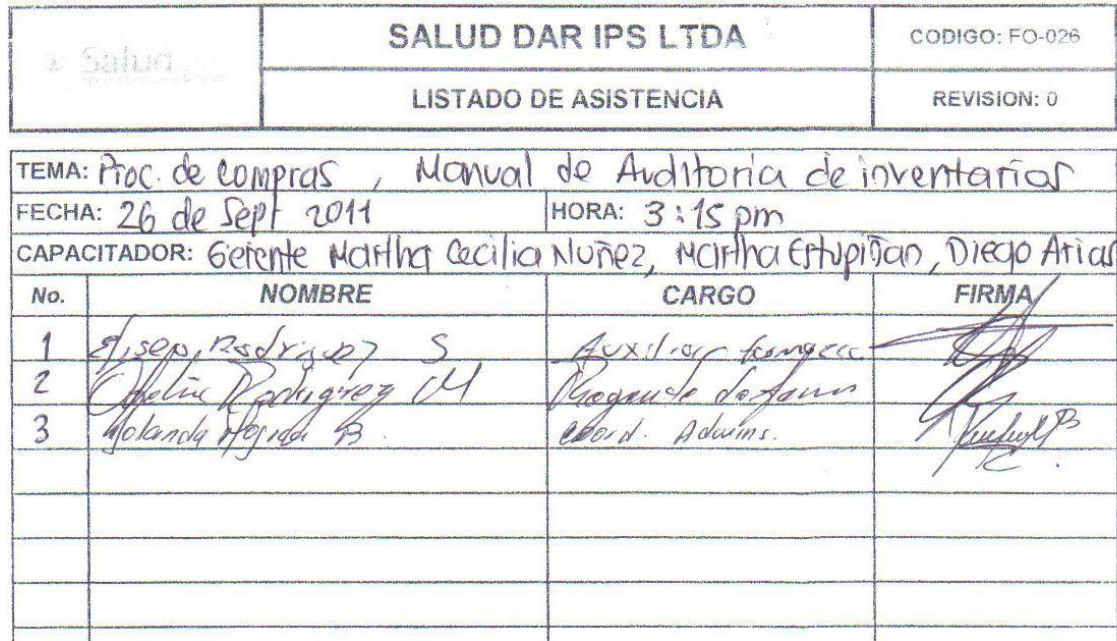 Salud
SALUD DAR IPS LTDA
CODIGO: FO-026
LISTADO DE ASISTENCIA
REVISION: 0
TEMA: Proc. de compras , Manual de Auditoria de inventarios
FECHA: 26 de Sept 2011 HORA: 3:15 pm
CAPACITADOR: Gerente Martha Cecilia Nuñez, Martha Estupiñan, Diego Arias
No. NOMBRE CARGO FIRMA
1 Rodriguez S Auxiliar
2 Rodriguez M
3 Yolanda B. Coord. Admins.